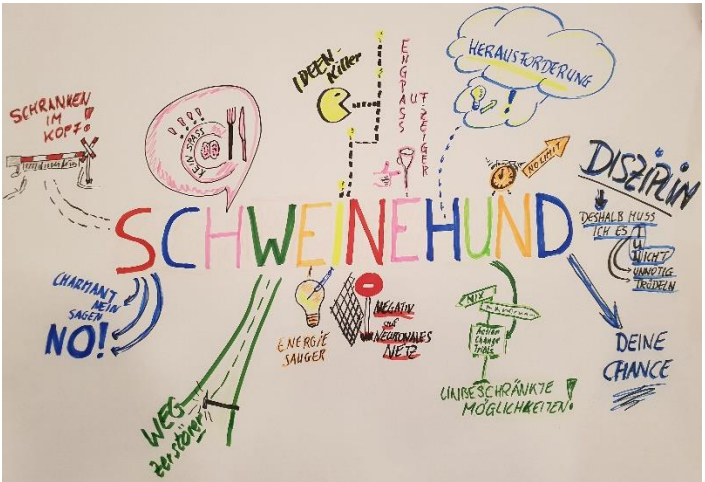 SCHRANKEN
IM
KOPF!
KEIN SPASS
IDEEN-
Killer
ENGPASS
AUFZEIGER
HERAUSFORDERUNG
NO LIMIT
DISZIPLIN
DESHALB MUSS
ICH ES
TU
NICHT
UNNÖTIG
TRÖDELN
SCHWEINEHUND
CHARMANT
NEIN
SAGEN
NO!
WEG
zerstörer
ENERGIE
SAUGER
NEGATIV
auf
NEURONALES
NETZ
MIX
Action
Change
Triple
UNBESCHRÄNKTE
MÖGLICHKEITEN!
DEINE
CHANCE